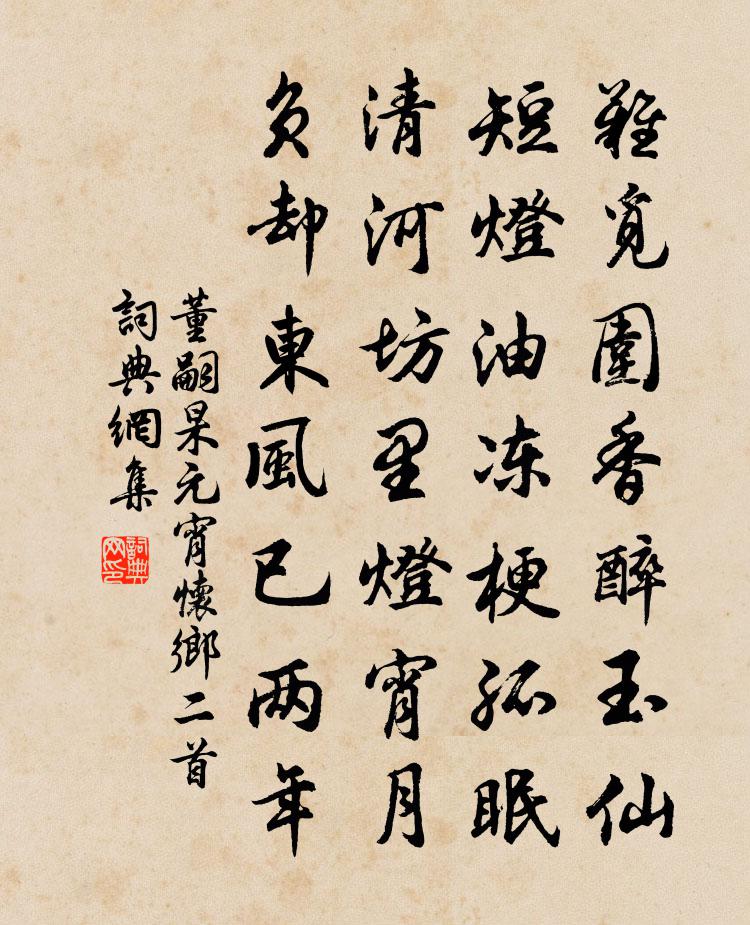 難覓圍香醉玉仙
短燈油冻梗孤眠
清河坊里燈宵月
負却東風已两年
董嗣杲元宵懷鄉二首
詞典網集
詞典
网印